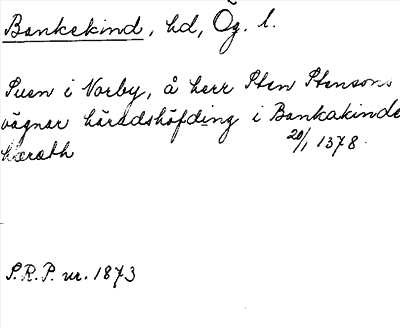 Bankekind, hd, Ög. l.
Suen i Norby, å herr Sten Stensons
vägnar häradshöfding i Bankakinde
hæræth 20/1 1378.
S.R.P. nr. 1873